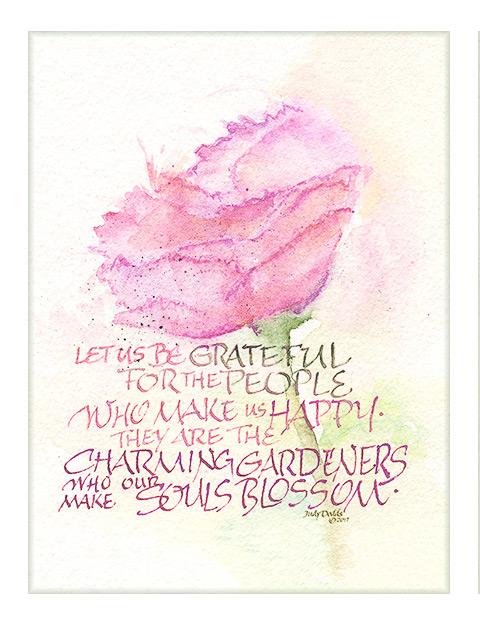 LET US BE GRATEFUL
FOR THE PEOPLE
WHO MAKE US HAPPY.
THEY ARE THE
CHARMING GARDENERS
WHO OUR
MAKE SOULS BLOSSOM.
Judy Dodds
© 2017